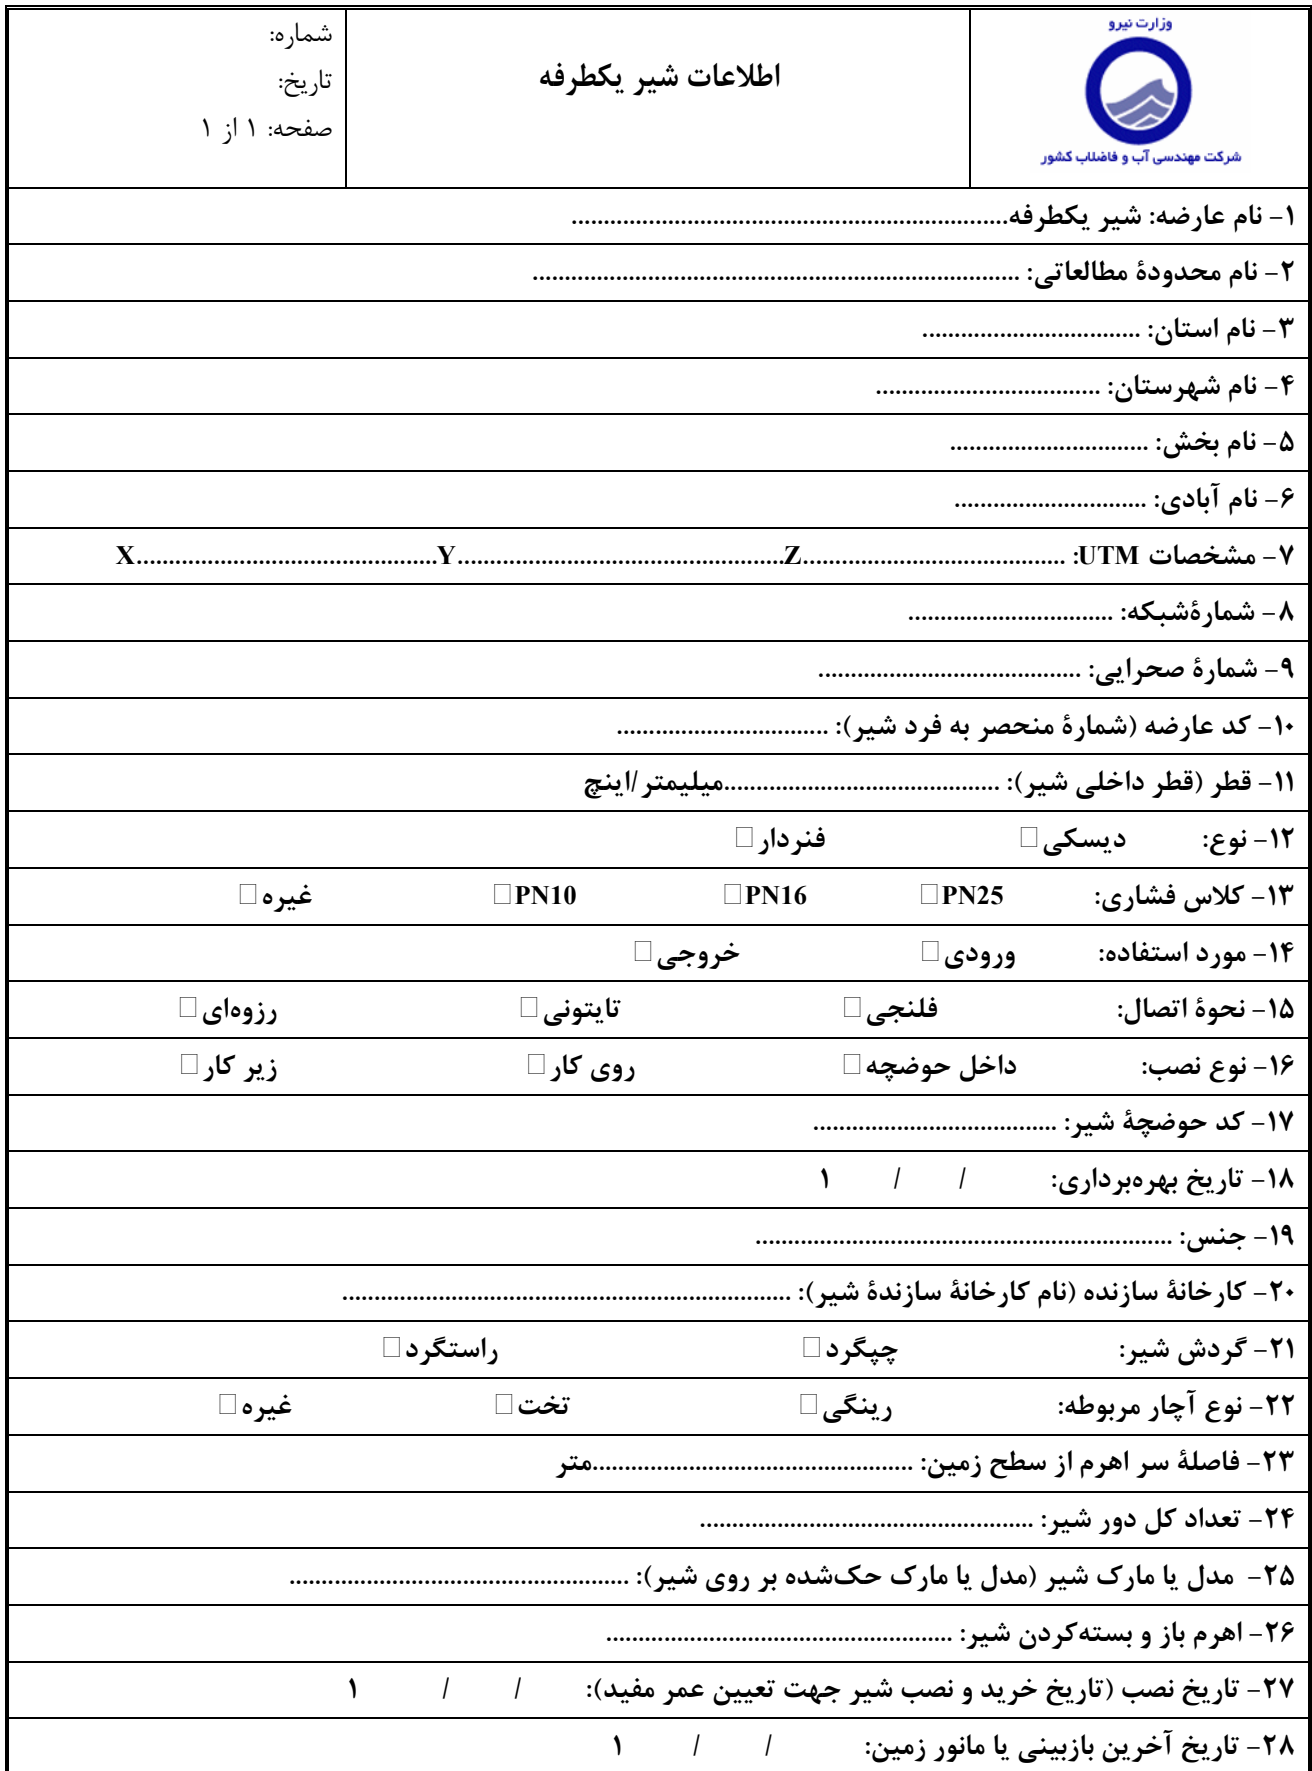 وزارت نیرو
شرکت مهندسی آب و فاضلاب کشور
اطلاعات شیر یکطرفه
شماره:
تاریخ:
صفحه: ۱ از ۱
۱- نام عارضه: شیر یکطرفه....................................................................
۲- نام محدودۀ مطالعاتی: ............................................................................
۳- نام استان: ..................................
۴- نام شهرستان: ...................................
۵- نام بخش: ...............................
۶- نام آبادی: ..............................
۷- مشخصات UTM: .........................................Z...................................................Y...............................................X
۸- شمارۀشبکه: ................................
۹- شمارۀ صحرایی: .........................................
۱۰- کد عارضه (شمارۀ منحصر به فرد شیر): .................................
۱۱- قطر (قطر داخلی شیر): ...........................................میلیمتر/اینچ
۱۲- نوع: دیسکی□ فنردار□
۱۳- کلاس فشاری: PN25□ PN16□ PN10□ غیره□
۱۴- مورد استفاده: ورودی□ خروجی□
۱۵- نحوۀ اتصال: فلنجی□ تایتونی□ رزوه‌ای□
۱۶- نوع نصب: داخل حوضچه□ روی کار□ زیر کار□
۱۷- کد حوضچۀ شیر: ......................................
۱۸- تاریخ بهره‌برداری: / / ۱
۱۹- جنس: .................................................................
۲۰- کارخانۀ سازنده (نام کارخانۀ سازندۀ شیر): ......................................................................
۲۱- گردش شیر: چپگرد□ راستگرد□
۲۲- نوع آچار مربوطه: رینگی□ تخت□ غیره□
۲۳- فاصلۀ سر اهرم از سطح زمین: ..................................................متر
۲۴- تعداد کل دور شیر: ....................................................
۲۵- مدل یا مارک شیر (مدل یا مارک حک‌شده بر روی شیر): .....................................................
۲۶- اهرم باز و بسته‌کردن شیر: ......................................................
۲۷- تاریخ نصب (تاریخ خرید و نصب شیر جهت تعیین عمر مفید): / / ۱
۲۸- تاریخ آخرین بازبینی یا مانور زمین: / / ۱